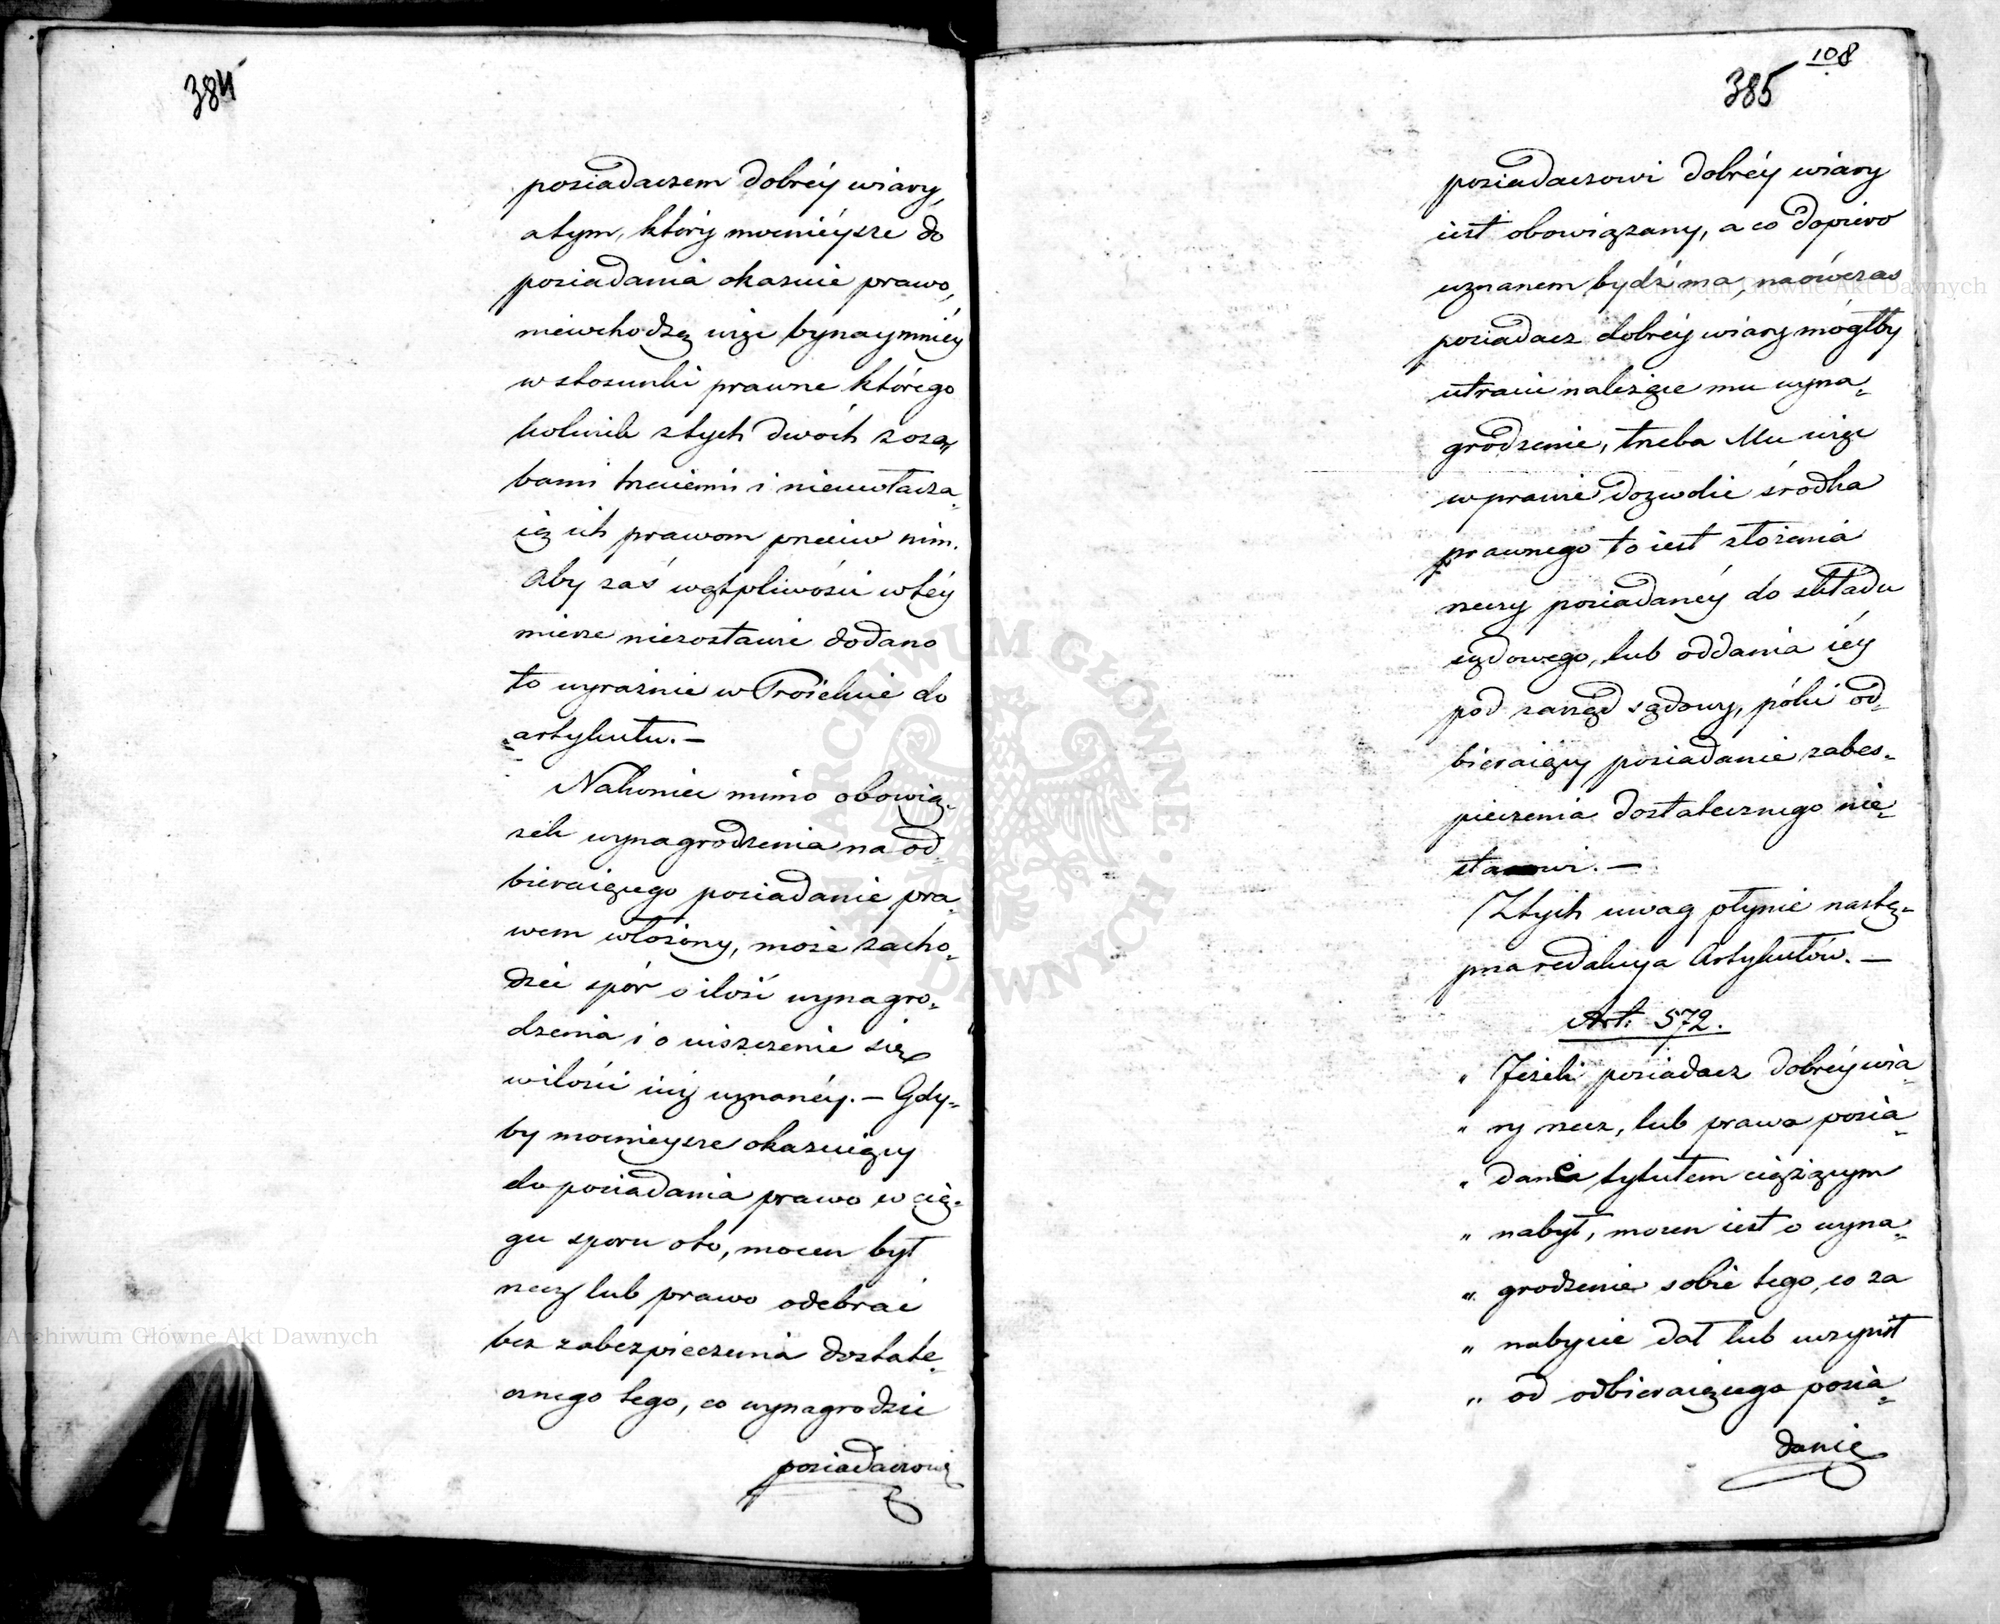 384
posiadaczem dobréy wiary,
atym, który mocniéysze do
posiadania okazuie prawo,
niewchodzą więc bynaymniéy
w stosunki prawne którego
kolwiek ztych dwóch zoso„
bami trzeciemi i nieuwłacza„
ią ich prawom przeciw nim.
Aby zaś wątpliwości wtéy
mierze niezostawić dodano
to wyraźnie w Projekcie do
artykułu. —
Nakoniec mimo obowią„
zek wynagrodzenia na od„
bieraiącego posiadanie pra„
wem włożony, może zacho„
dzić spór o ilość wynagro„
dzenia i o uiszczenie się
wilości iuż uznanéy. — Gdy„
by mocnieysze okazuiący
do posiadania prawo w cią„
gu sporu oto, mocen był
rzecz lub prawo odebrać
bez zabezpieczenia dostate„
cznego tego, co wynagrodzić
posiadaczowi
108
385
posiadaczowi dobréy wiary
iest obowiązany, a co dopiero
uznanem bydź ma, naówczas
posiadacz dobréy wiary mógłby
utracić należące mu wyna„
grodzenie, trzeba Mu więc
w prawie dozwolić środka
prawnego to iest złożenia
rzeczy posiadanéy do składu
sądowego, lub oddania iéy
pod zarząd sądowy, póki od„
bieraiący posiadanie zabes„
pieczenia dostatecznego nie„
stawi. —
Ztych uwag płynie nastę„
pna redakcya Artykułów. —
Art: 572.
„ Jeżeli posiadacz dobréy wia„
„ ry rzecz, lub prawo posia„
„ dania tytułem ciążącym
„ nabył, mocen iest o wyna„
„ grodzenie sobie tego, co za
„ nabycie dał lub uczynił
„ od odbieraiącego posia„
danie
Archiwum Główne Akt Dawnych
Archiwum Główne Akt Dawnych
ARCHIWUM GŁÓWNE AKT DAWNYCH